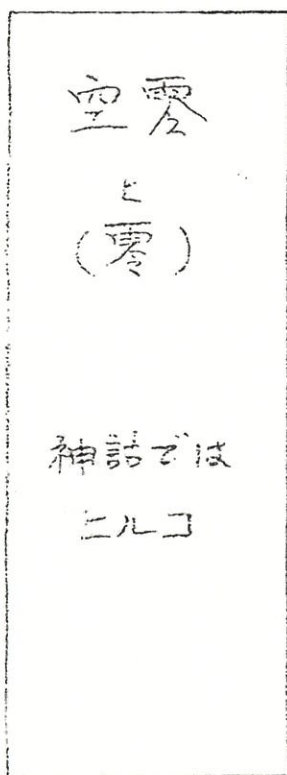 空零
と
(零)
神話では
ヒルコ